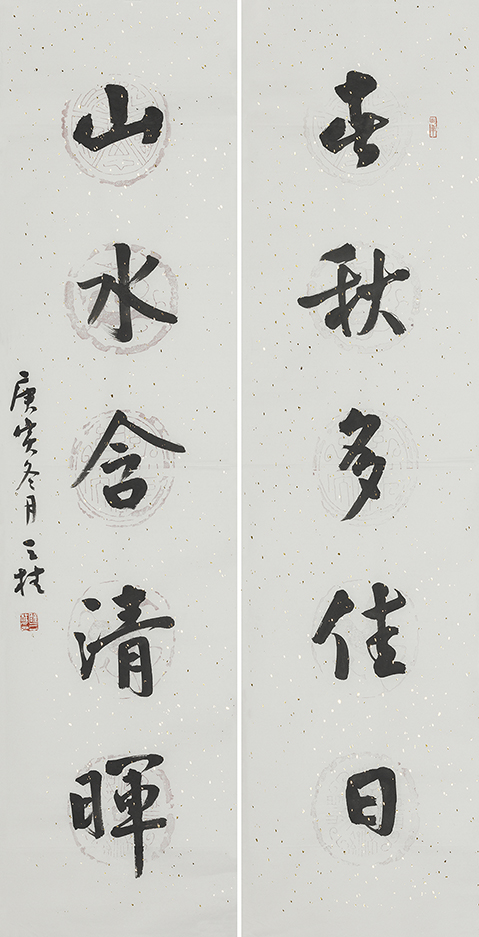 春秋多佳日
山水含清暉
庚寅冬月